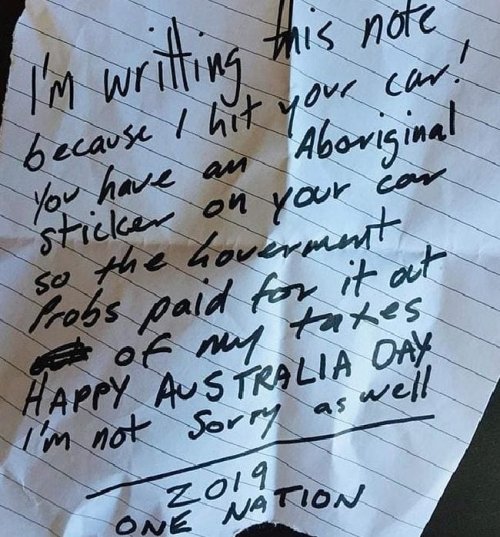 I'm writting this note
because I hit your car!
You have an Aboriginal
sticker on your car
so the Goverment
Probs paid for it out
of my taxes
HAPPY AUSTRALIA DAY
I'm not Sorry as well
2019
ONE NATION